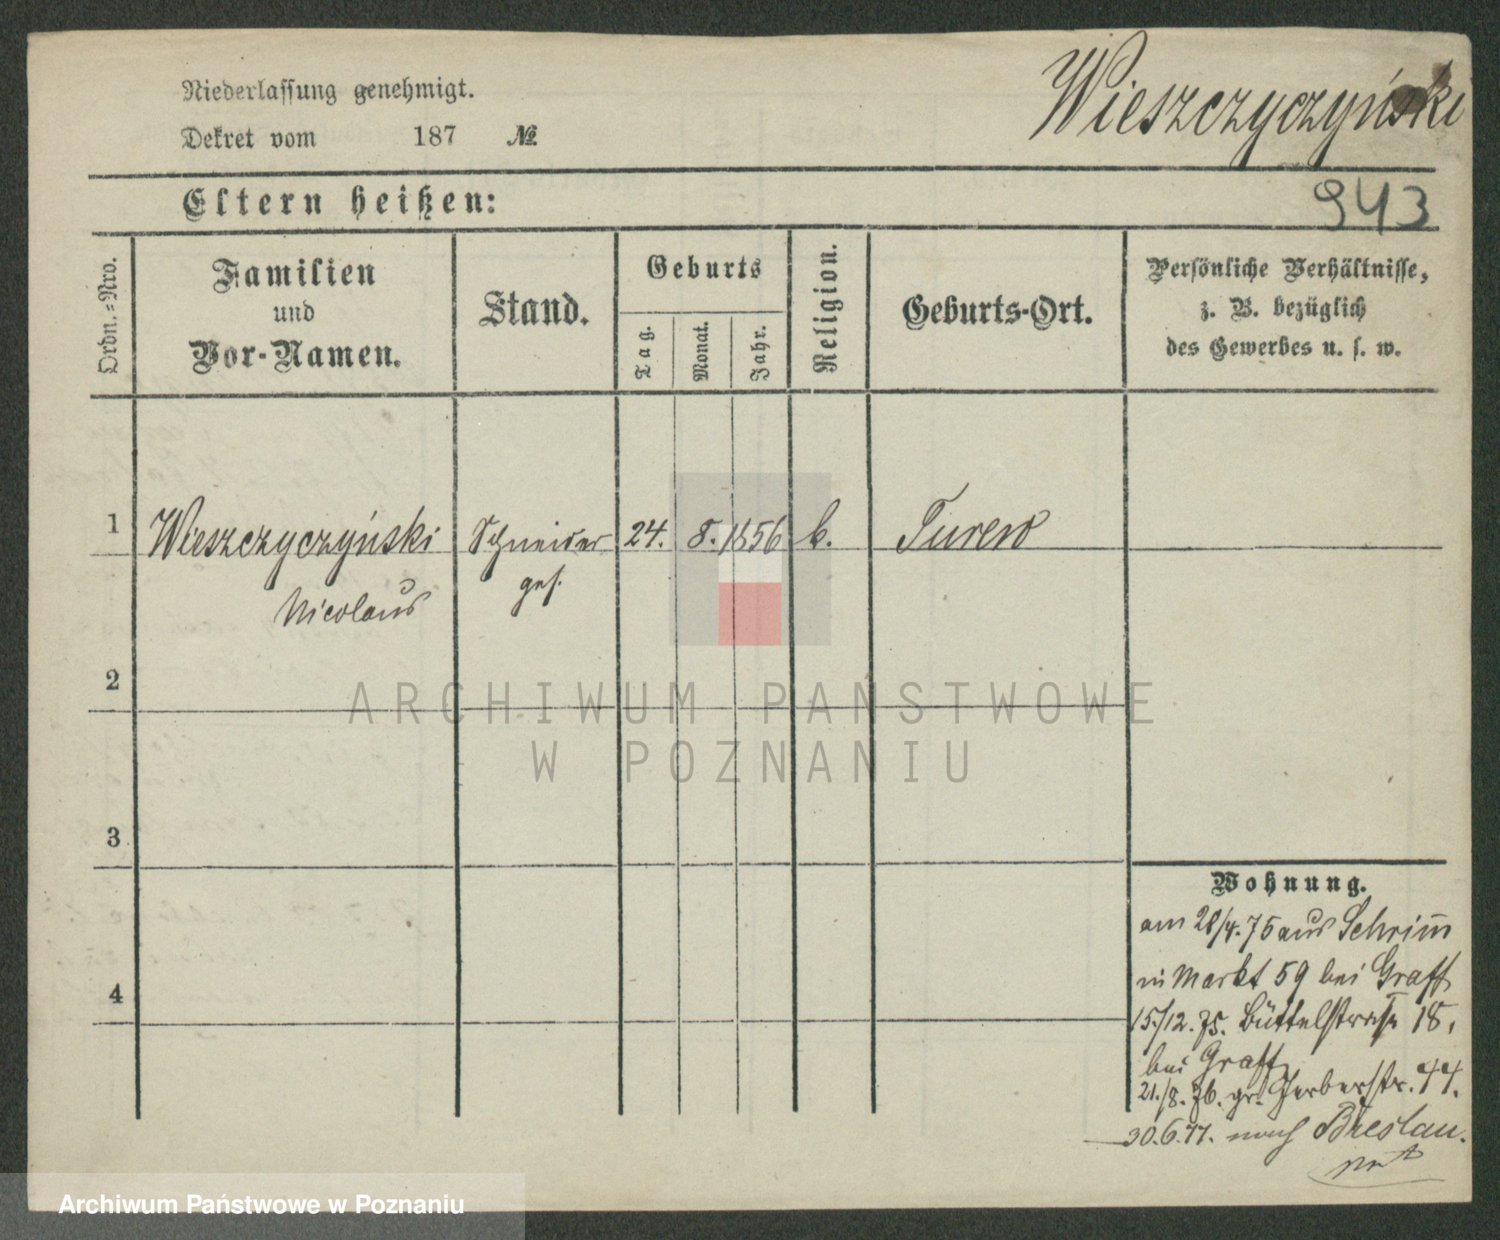 Niederlassung genehmigt.
Wieszczyczyński
Dekret vom 187 №
943
Eltern heißen:
Ordn.=Nro.
Familien
und
Vor-Namen.
Stand.
Geburts
Tag.
Monat.
Jahr.
Religion.
Geburts-Ort.
Persönliche Verhältnisse,
z. B. bezüglich
des Gewerbes u. s. w.
1 Wieszczyczyński Schneider 24. 8. 1856 k. Turew
Nicolaus ges.
2
ARCHIWUM PAŃSTWOWE
W POZNANIU
3
4
Wohnung.
am 28/4. 75 aus Schrim̄
in Markt 59 bei Graff
15/12. 75. Büttelstraße 18,
bei Graff
21./8. 76. gr. Gerberstr. 44.
30.6.77. nach Breslau.
Archiwum Państwowe w Poznaniu